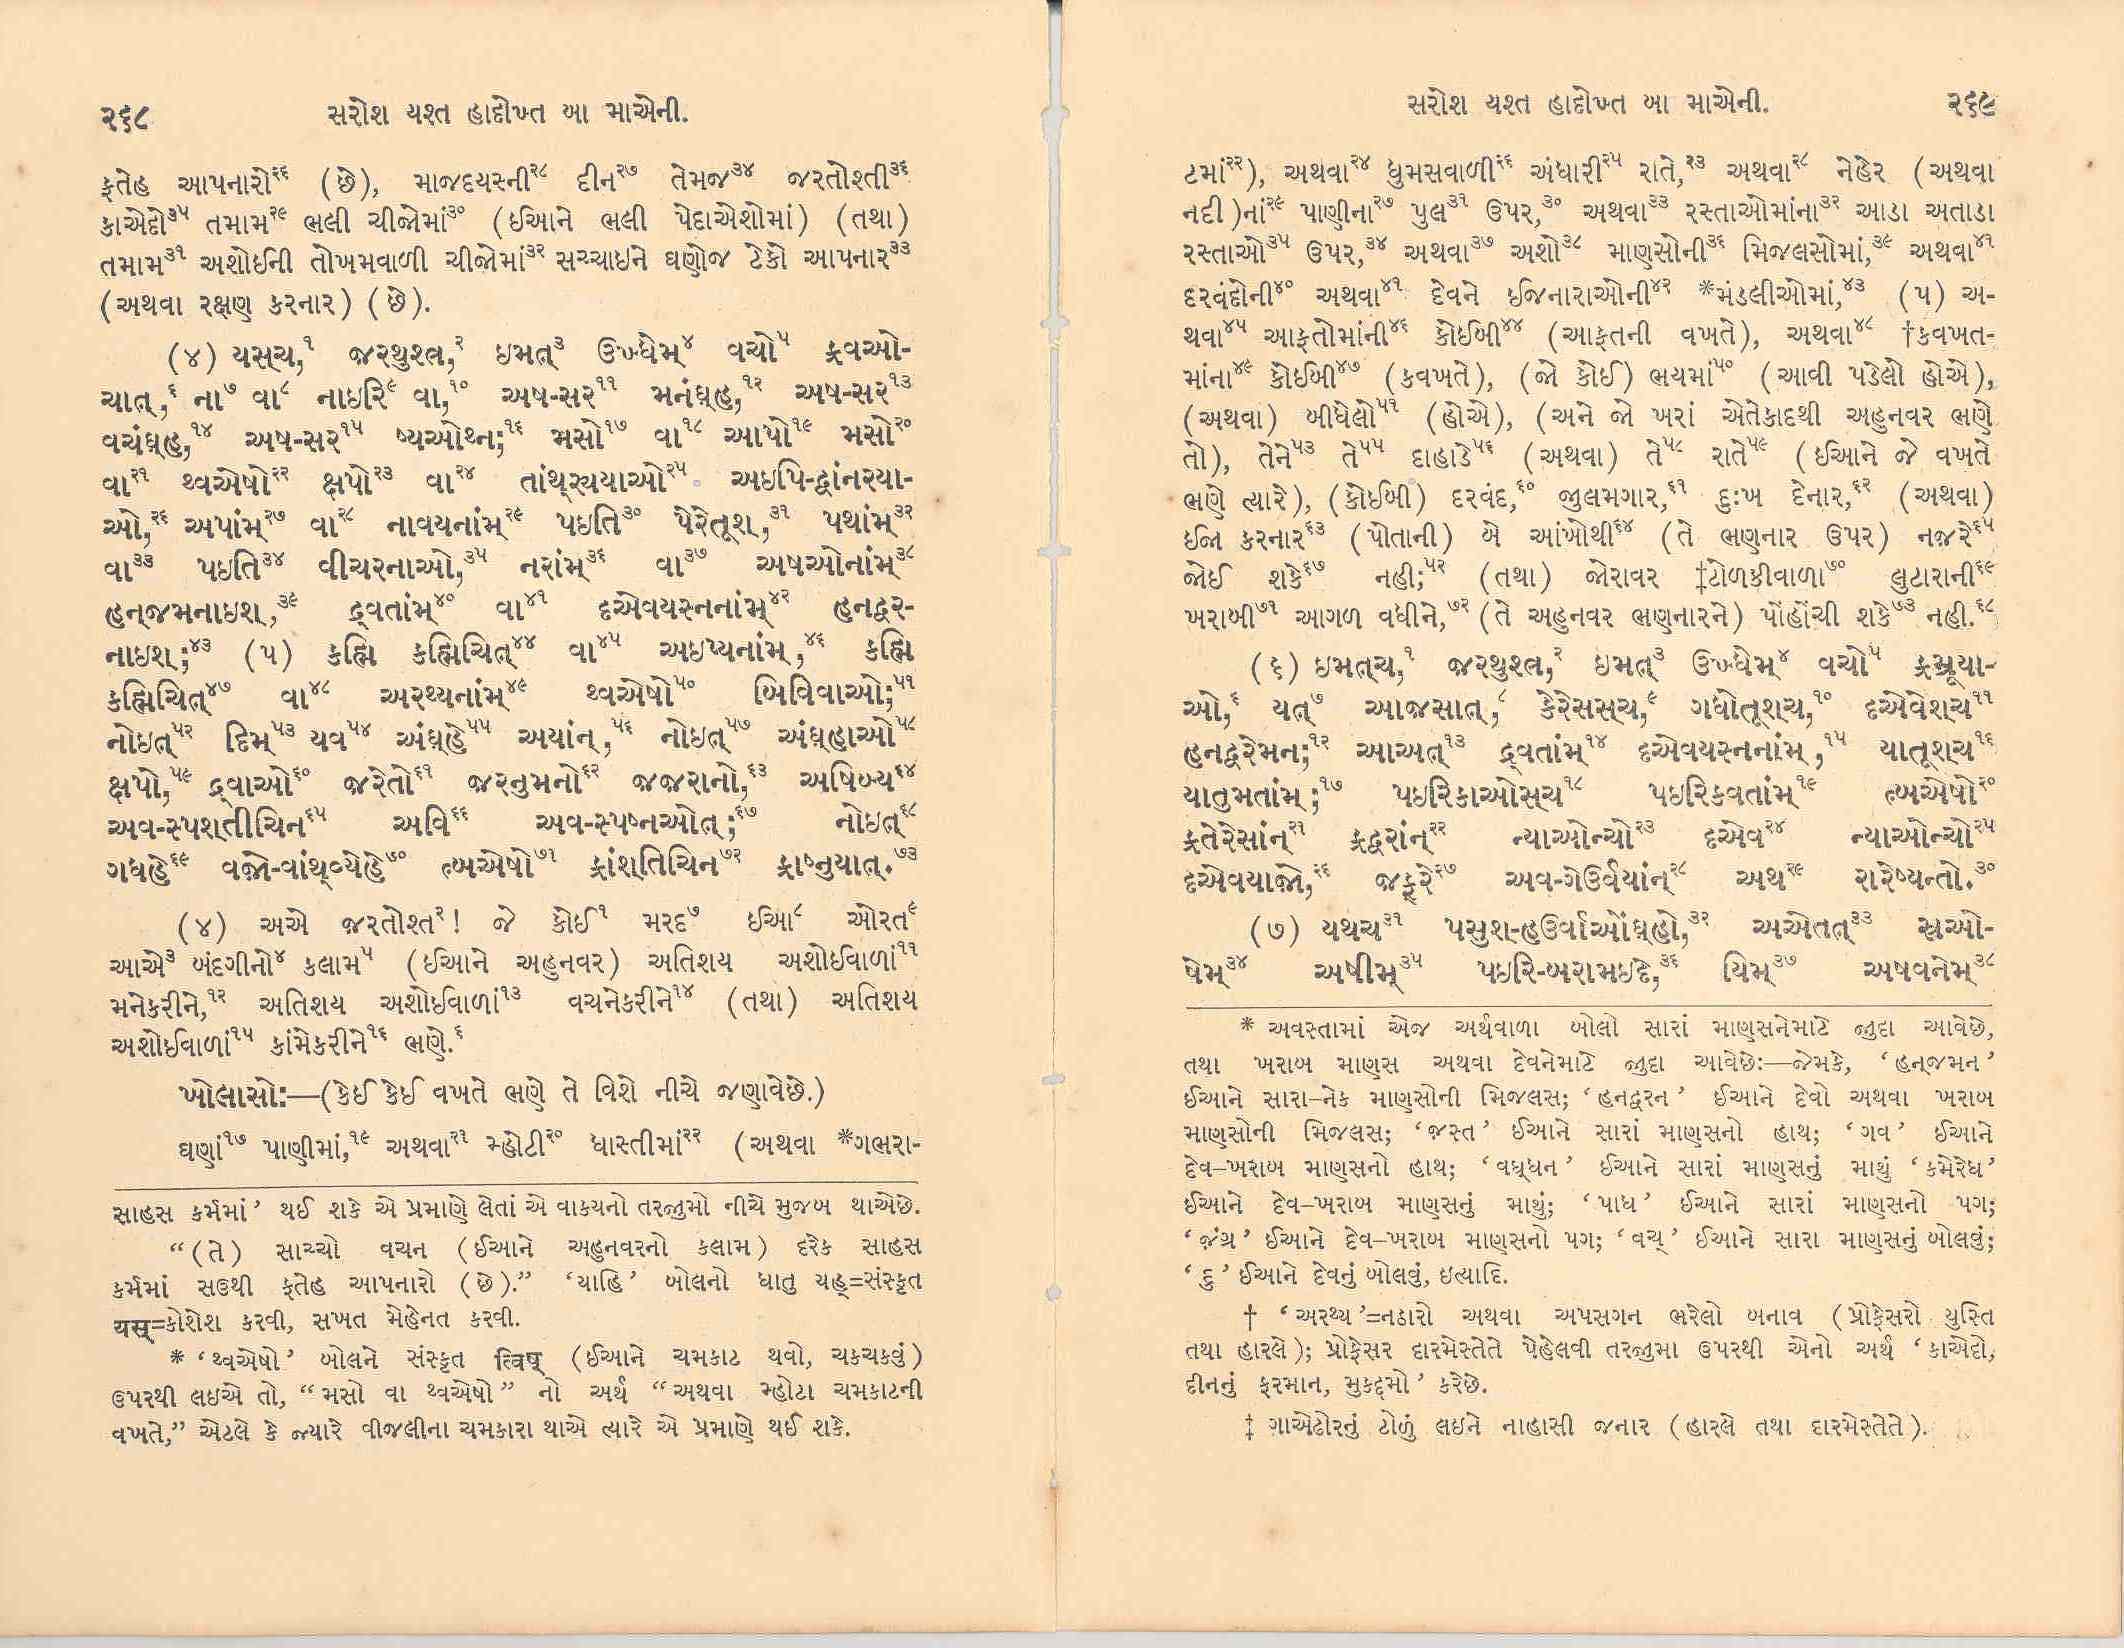 ૨૬૮ સરોશ યશ્ત હાદોખ્ત બા માએની.
ફતેહ આપનારો૨૬ (છે), માજદયસ્ની૨૮ દીન૨૭ તેમજ૩૪ જરતોશ્તી૩૬
કાએદો૩૫ તમામ૨૯ ભલી ચીજોમાં૩૦ (ઈઆને ભલી પેદાએશોમાં) (તથા)
તમામ૩૧ અશોઈની તોખમવાળી ચીજોમાં૩૨ સચ્ચાઇને ઘણોજ ટેકો આપનાર૩૩
(અથવા રક્ષણ કરનાર) (છે).
(૪) યસ્ચ,૧ જ઼રથુશ્ત્ર,૨ ઇમત્૩ ઉખ્ધેમ્૪ વચો૫ ફ્રવઓ-
ચાત્,૬ ના૭ વા૮ નાઇરિ૯ વા,૧૦ અષ-સર૧૧ મનંઘ્હ,૧૨ અષ-સર૧૩
વચંઘ્હ,૧૪ અષ-સર૧૫ ષ્યઓથ્ન;૧૬ મસો૧૭ વા૧૮ આપો૧૯ મસો૨૦
વા૨૧ થ્વએષો૨૨ ક્ષપો૨૩ વા૨૪ તાંથ્ર્યયાઓ૨૫ અઇપિ-દ્વાંનરયા-
ઓ,૨૬ અપાંમ્૨૭ વા૨૮ નાવયનાંમ્૨૯ પઇતિ૩૦ પેરેતૂશ્,૩૧ પથાંમ્૩૨
વા૩૩ પઇતિ૩૪ વીચરનાઓ,૩૫ નરાંમ્૩૬ વા૩૭ અષઓનાંમ્૩૮
હન્જમનાઇશ્,૩૯ દ્ર્વતાંમ્૪૦ વા૪૧ દએવયસ્નનાંમ્૪૨ હનદ્વર-
નાઇશ્;૪૩ (૫) કહ્મિ કહ્મિચિત્૪૪ વા૪૫ અઇપ્યનાંમ્,૪૬ કહ્મિ
કહ્મિચિત્૪૭ વા૪૮ અરથ્યનાંમ્૪૯ થ્વએષો૫૦ બિવિવાઓ;૫૧
નોઇત્૫૨ દિમ્૫૩ યવ૫૪ અંઘ્હે૫૫ અયાંન્,૫૬ નોઇત્૫૭ અંઘ્હાઓ૫૮
ક્ષપો,૫૯ દ્ર્વાઓ૬૦ જ઼રેતો૬૧ જ઼રનુમનો૬૨ જ઼જ઼રાનો,૬૩ અષિબ્ય૬૪
અવ-સ્પશ્તીચિન૬૫ અવિ૬૬ અવ-સ્પષ્નઓત્;૬૭ નોઇત્૬૮
ગધહે૬૯ વજ઼ો-વાંથ્વ્યેહે૭૦ ત્બએષો૭૧ ફ્રાંશ્તિચિન૭૨ ફ્રાષ્નુયાત્.૭૩
(૪) અએ જ઼રતોશ્ત૨! જે કોઈ૧ મરદ૭ ઇઆ૮ ઓરત૯
આએ૩ બંદગીનો૪ કલામ૫ (ઈઆને અહુનવર) અતિશય અશોઈવાળાં૧૧
મનેકરીને,૧૨ અતિશય અશોઈવાળાં૧૩ વચનેકરીને૧૪ (તથા) અતિશય
અશોઈવાળાં૧૫ કાંમેકરીને૧૬ ભણે.૬
ખોલાસો:—(કેઈ કેઈ વખતે ભણે તે વિશે નીચે જણાવેછે.)
ઘણાં૧૭ પાણીમાં,૧૯ અથવા૨૧ મ્હોટી૨૦ ધાસ્તીમાં૨૨ (અથવા *ગભરા-
સાહસ કર્મમાં’ થઈ શકે એ પ્રમાણે લેતાં એ વાક્યનો તરજુમો નીચે મુજબ થાએછે.
“(તે) સાચ્ચો વચન (ઈઆને અહુનવરનો કલામ) દરેક સાહસ
કર્મમાં સઉથી ફતેહ આપનારો (છે).” ‘યાહિ’ બોલનો ધાતુ યહ્=સંસ્કૃત
यस्=કોશેશ કરવી, સખત મેહેનત કરવી.
* ‘થ્વએષો’ બોલને સંસ્કૃત त्विष् (ઈઆને ચમકાટ થવો, ચકચકવું)
ઉપરથી લઇએ તો, “મસો વા થ્વએષો” નો અર્થ “અથવા મ્હોટા ચમકાટની
વખતે,” એટલે કે જ્યારે વીજલીના ચમકારા થાએ ત્યારે એ પ્રમાણે થઈ શકે.
સરોશ યશ્ત હાદોખ્ત બા માએની. ૨૬૯
ટમાં૨૨), અથવા૨૪ ધુમસવાળી૨૬ અંધારી૨૫ રાતે,૨૩ અથવા૨૮ નેહેર (અથવા
નદી)નાં૨૯ પાણીના૨૭ પુલ૩૧ ઉપર,૩૦ અથવા૩૩ રસ્તાઓમાંના૩૨ આડા અતાડા
રસ્તાઓ૩૫ ઉપર,૩૪ અથવા૩૭ અશો૩૮ માણસોની૩૬ મિજલસોમાં,૩૯ અથવા૪૧
દરવંદોની૪૦ અથવા૪૧ દેવને ઈજનારાઓની૪૨ *મંડલીઓમાં,૪૩ (૫) અ-
થવા૪૫ આફતોમાંની૪૬ કોઈબી૪૪ (આફતની વખતે), અથવા૪૮ †કવખત-
માંના૪૯ કોઈબી૪૭ (કવખતે), (જો કોઈ) ભયમાં૫૦ (આવી પડેલો હોએ),
(અથવા) બીધેલો૫૧ (હોએ), (અને જો ખરાં એતેકાદથી અહુનવર ભણે
તો), તેને૫૩ તે૫૫ દાહાડે૫૬ (અથવા) તે૫૮ રાતે૫૯ (ઈઆને જે વખતે
ભણે ત્યારે), (કોઈબી) દરવંદ,૬૦ જુલમગાર,૬૧ દુઃખ દેનાર,૬૨ (અથવા)
ઈજા કરનાર૬૩ (પોતાની) બે આંખોથી૬૪ (તે ભણનાર ઉપર) નજ઼રે૬૫
જોઈ શકે૬૭ નહી;૫૨ (તથા) જોરાવર ‡ટોળકીવાળા૭૦ લુટારાની૬૯
ખરાબી૭૧ આગળ વધીને,૭૨ (તે અહુનવર ભણનારને) પોંહોંચી શકે૭૩ નહી.૬૮
(૬) ઇમત્ચ,૧ જ઼રથુશ્ત્ર,૨ ઇમત્૩ ઉખ્ધેમ્૪ વચો૫ ફ્રમ્રૂયા-
ઓ,૬ યત્૭ આજ઼સાત્,૮ કેરેસસ્ચ,૯ ગધોતૂશ્ચ,૧૦ દએવેશ્ચ૧૧
હનદ્વરેમન;૧૨ આઅત્૧૩ દ્ર્વતાંમ્૧૪ દએવયસ્નનાંમ્,૧૫ યાતૂશ્ચ૧૬
યાતુમતાંમ્;૧૭ પઇરિકાઓસ્ચ૧૮ પઇરિકવતાંમ્૧૯ ત્બએષો૨૦
ફ્રતેરેસાંન્૨૧ ફ્રદ્વરાંન્૨૨ ન્યાઓન્ચો૨૩ દએવ૨૪ ન્યાઓન્ચો૨૫
દએવયાજ઼ો,૨૬ જ઼ફ્રે૨૭ અવ-ગેઉર્વયાંન્૨૮ અથ૨૯ રારેષ્યન્તો.૩૦
(૭) યથચ૩૧ પસુશ્-હઉર્વાઓંઘ્હો,૩૨ અએતત્૩૩ સ્રઓ-
ષેમ્૩૪ અષીમ્૩૫ પઇરિ-બરામઇદે,૩૬ યિમ્૩૭ અષવનેમ્૩૮
* અવસ્તામાં એજ અર્થવાળા બોલો સારાં માણસનેમાટે જુદા આવેછે,
તથા ખરાબ માણસ અથવા દેવનેમાટે જુદા આવેછે:—જેમકે, ‘હન્જમન’
ઈઆને સારા–નેક માણસોની મિજલસ; ‘હનદ્વરન’ ઈઆને દેવો અથવા ખરાબ
માણસોની મિજલસ; ‘જ઼સ્ત’ ઈઆને સારાં માણસનો હાથ; ‘ગવ’ ઈઆને
દેવ–ખરાબ માણસનો હાથ; ‘વઘ્ધન’ ઈઆને સારાં માણસનું માથું ‘કમેરેધ’
ઈઆને દેવ–ખરાબ માણસનું માથું; ‘પાધ’ ઈઆને સારાં માણસનો પગ;
‘જ઼ંગ્ર’ ઈઆને દેવ–ખરાબ માણસનો પગ; ‘વચ્’ ઈઆને સારા માણસનું બોલવું;
‘દુ’ ઈઆને દેવનું બોલવું, ઇત્યાદિ.
† ‘અરથ્ય’=નઠારો અથવા અપસગન ભરેલો બનાવ (પ્રોફેસરો યુસ્તિ
તથા હારલે); પ્રોફેસર દારમેસ્તેતે પેહેલવી તરજુમા ઉપરથી એનો અર્થ ‘કાએદો,
દીનનું ફરમાન, મુકદ્દમો’ કરેછે.
‡ ગાએઢોરનું ટોળું લઇને નાહાસી જનાર (હારલે તથા દારમેસ્તેતે).